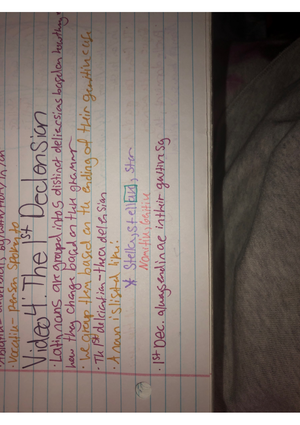 Vocative - person spoken to
Video 4: The 1st Declension
· Latin nouns are grouped into 5 distinct declensions based on how they
how they change based on their grammar
· we group them based on the ending of their genitive case
· The 1st declension - the a declension
· A noun is listed like:
* Stella, stellae, star
Nomitive, Genitive
· 1st Dec. always end in ae in their genitive sg